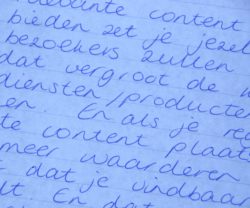 levante content
bieden zet je jezel
bezoekers zullen
dat vergroot de k
diensten/producten
en. En als je re
te content plaat
meer waarderen
t dat je vindbaar
lt En dat